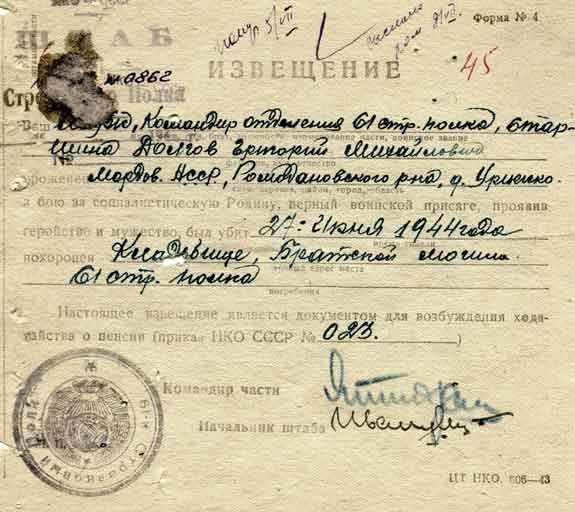 Форма № 4
ШТАБ
45
ИЗВЕЩЕНИЕ
№ 0862
Стр Полка
Ваш Командир отделения 61 стр. полка, Стар-
шина Долгов Григорий Михайлович
уроженец Мордов. АССР, Ромодановского р-на, д.
в бою за социалистическую Родину, верный воинской присяге, проявив
геройство и мужество, был убит 27: Июня 1944 года
похоронен Кладбище, Братской могила
61 стр. полка
погребения
Настоящее извещение является документом для возбуждения хода-
тайства о пенсии (приказ НКО СССР № 023.)
Командир части
Начальник штаба
61-й Стрелковый Полк
ЦТ НКО. 606—43